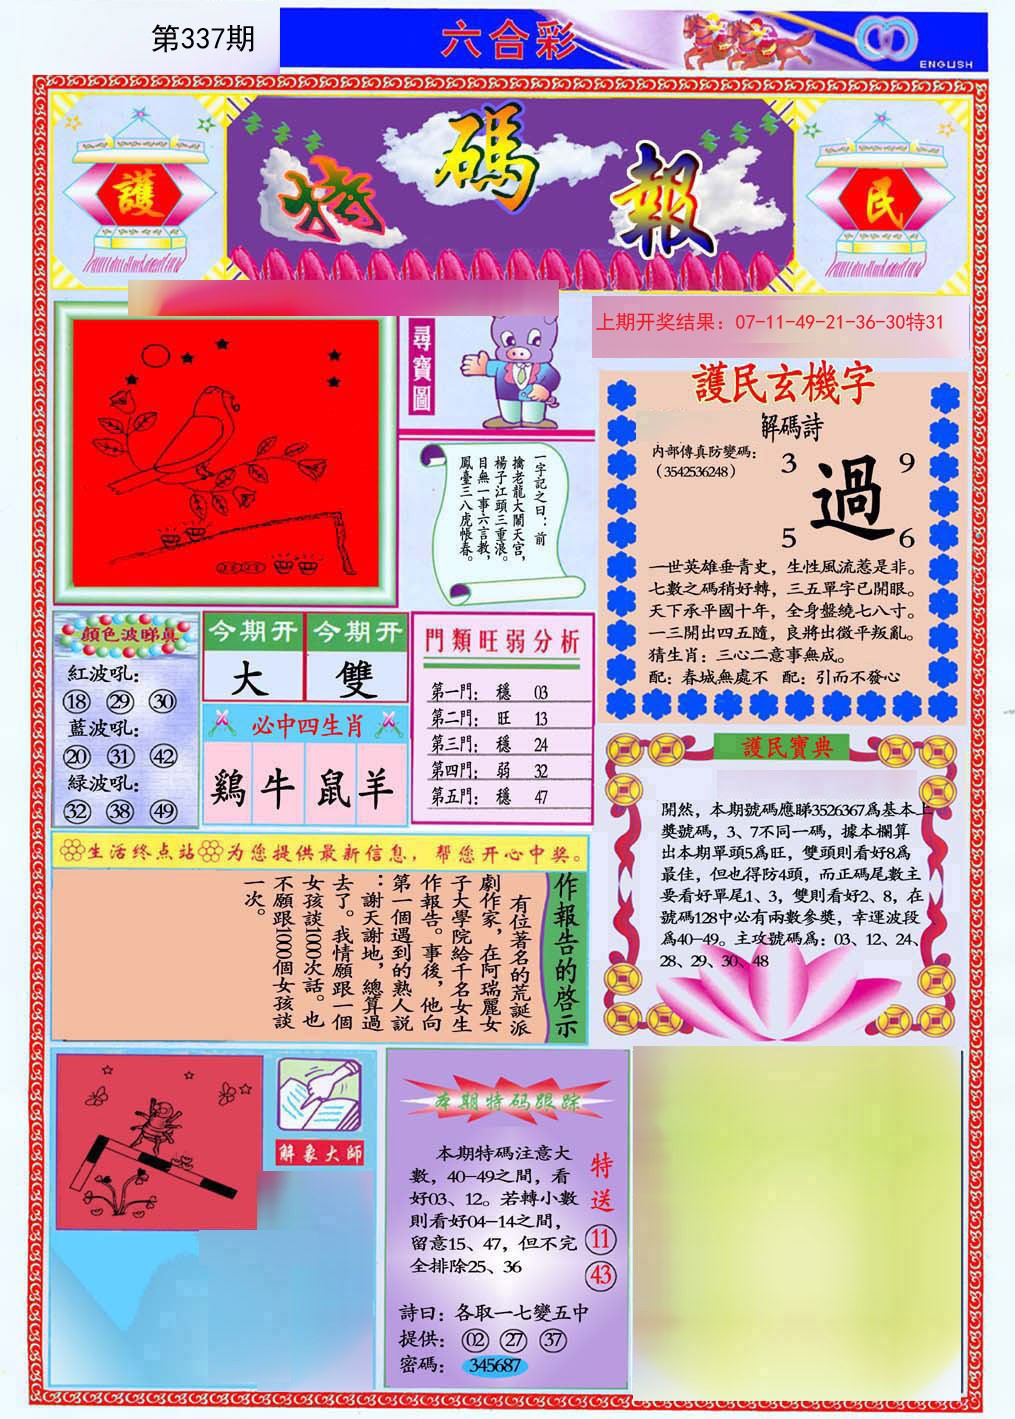 第337期
六合彩
ENGLISH
護
特碼報
民
上期开奖结果：07-11-49-21-36-30特31
尋寶圖
一字記之曰：前
擒老龍大鬧天宮，
楊子江頭三重浪。
目無一事六言教，
鳳臺三八虎帳春。
護民玄機字
解碼詩
內部傳真防變碼：
（3542536248）
3
9
過
5
6
一世英雄垂青史，生性風流惹是非。
七數之碼稍好轉，三五單字已開眼。
天下承平國十年，全身盤繞七八寸。
一三開出四五隨，良將出微平叛亂。
猜生肖：三心二意事無成。
配：春城無處不 配：引而不發心
顏色波睇真
紅波吼：
18 29 30
藍波吼：
20 31 42
綠波吼：
32 38 49
今期开
大
今期开
雙
必中四生肖
鷄 牛 鼠 羊
門類旺弱分析
第一門： 穩 03
第二門： 旺 13
第三門： 穩 24
第四門： 弱 32
第五門： 穩 47
護民寶典
開然，本期號碼應睇3526367爲基本上
獎號碼，3、7不同一碼，據本欄算
出本期單頭5爲旺，雙頭則看好8爲
最佳，但也得防4頭，而正碼尾數主
要看好單尾1、3，雙則看好2、8，在
號碼128中必有兩數參獎，幸運波段
爲40-49。主攻號碼爲：03、12、24、
28、29、30、48
生活终点站 为您提供最新信息，帮您开心中奖。
作報告的啓示
有位著名的荒誕派
劇作家，在阿瑞麗女
子大學院給千名女生
作報告。事後，他向
第一個遇到的熟人說
：謝天謝地，總算過
去了。我情願跟一個
女孩談1000次話。也
不願跟1000個女孩談
一次。
解象大師
本期特码跟踪
本期特碼注意大
數，40-49之間，看
好03、12。若轉小數
則看好04-14之間，
留意15、47，但不完
全排除25、36
特送
11
43
詩曰：各取一七變五中
提供： 02 27 37
密碼： 345687